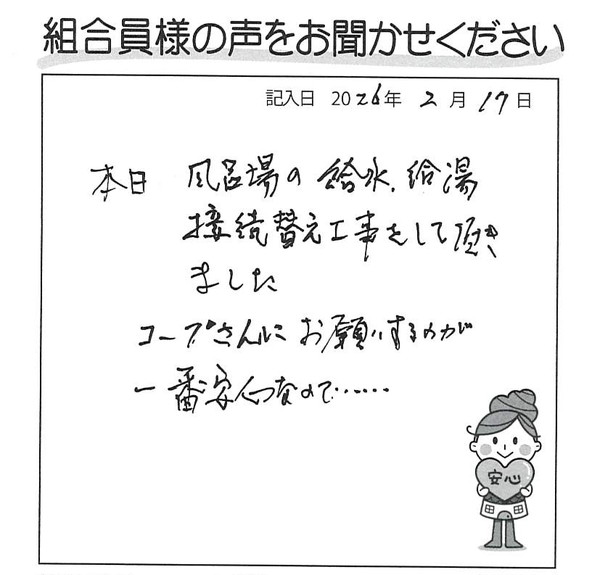 組合員様の声をお聞かせください
記入日 2026年 2月 17日
本日 風呂場の給水、給湯
接続替え工事をして頂き
ました
コープさんにお願いするのが
一番安心なので……
安心